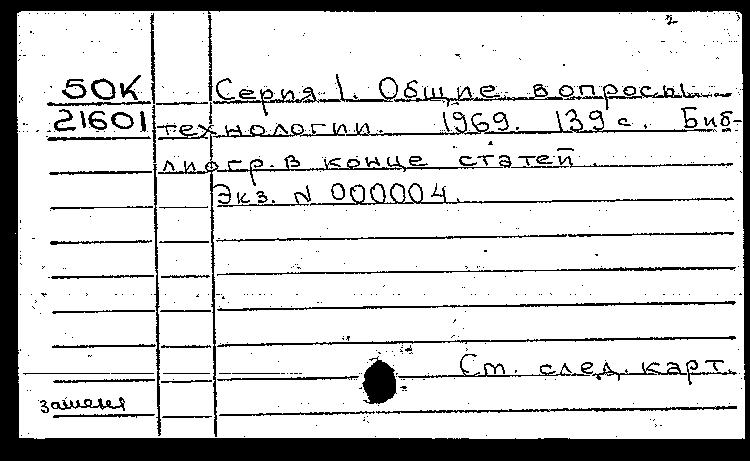 2
50К Серия 1. Общие вопросы
21601 технологии. 1969. 139 с. Биб-
лиогр. в конце статей.
Экз. N 000004.
См. след. карт.